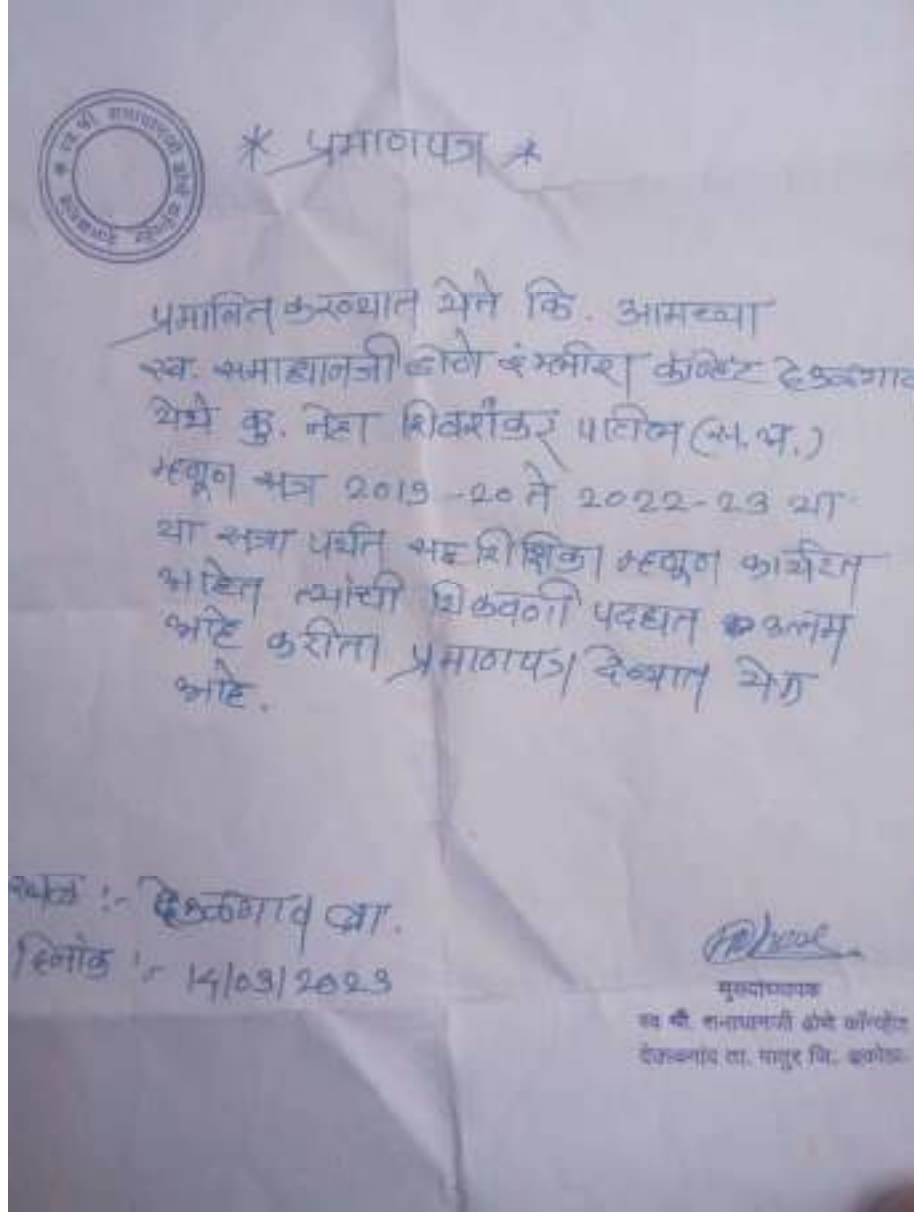 * प्रमाणपत्र *
प्रमाणित करण्यात येते कि. आमच्या
स्व. समाधानजी ढोणे इंग्लीश कॉन्व्हेंट देऊळगाव
येथे कु. नेहा शिवशंकर पाटील (स.अ.)
म्हणून सत्र 2019-20 ते 2022-23 या
या सत्रा पर्यंत सह शिक्षिका म्हणून कार्यरत
आहेत त्यांची शिकवणी पदधत उत्तम
आहे करीता प्रमाणपत्र देण्यात येत
आहे.
स्थळ :- देऊळगाव
दिनांक :- 14/03/2023
मुख्याध्यापक
स्व श्री. समाधानजी ढोणे कॉन्व्हेंट
देऊळगांव ता. पातुर जि. अकोला